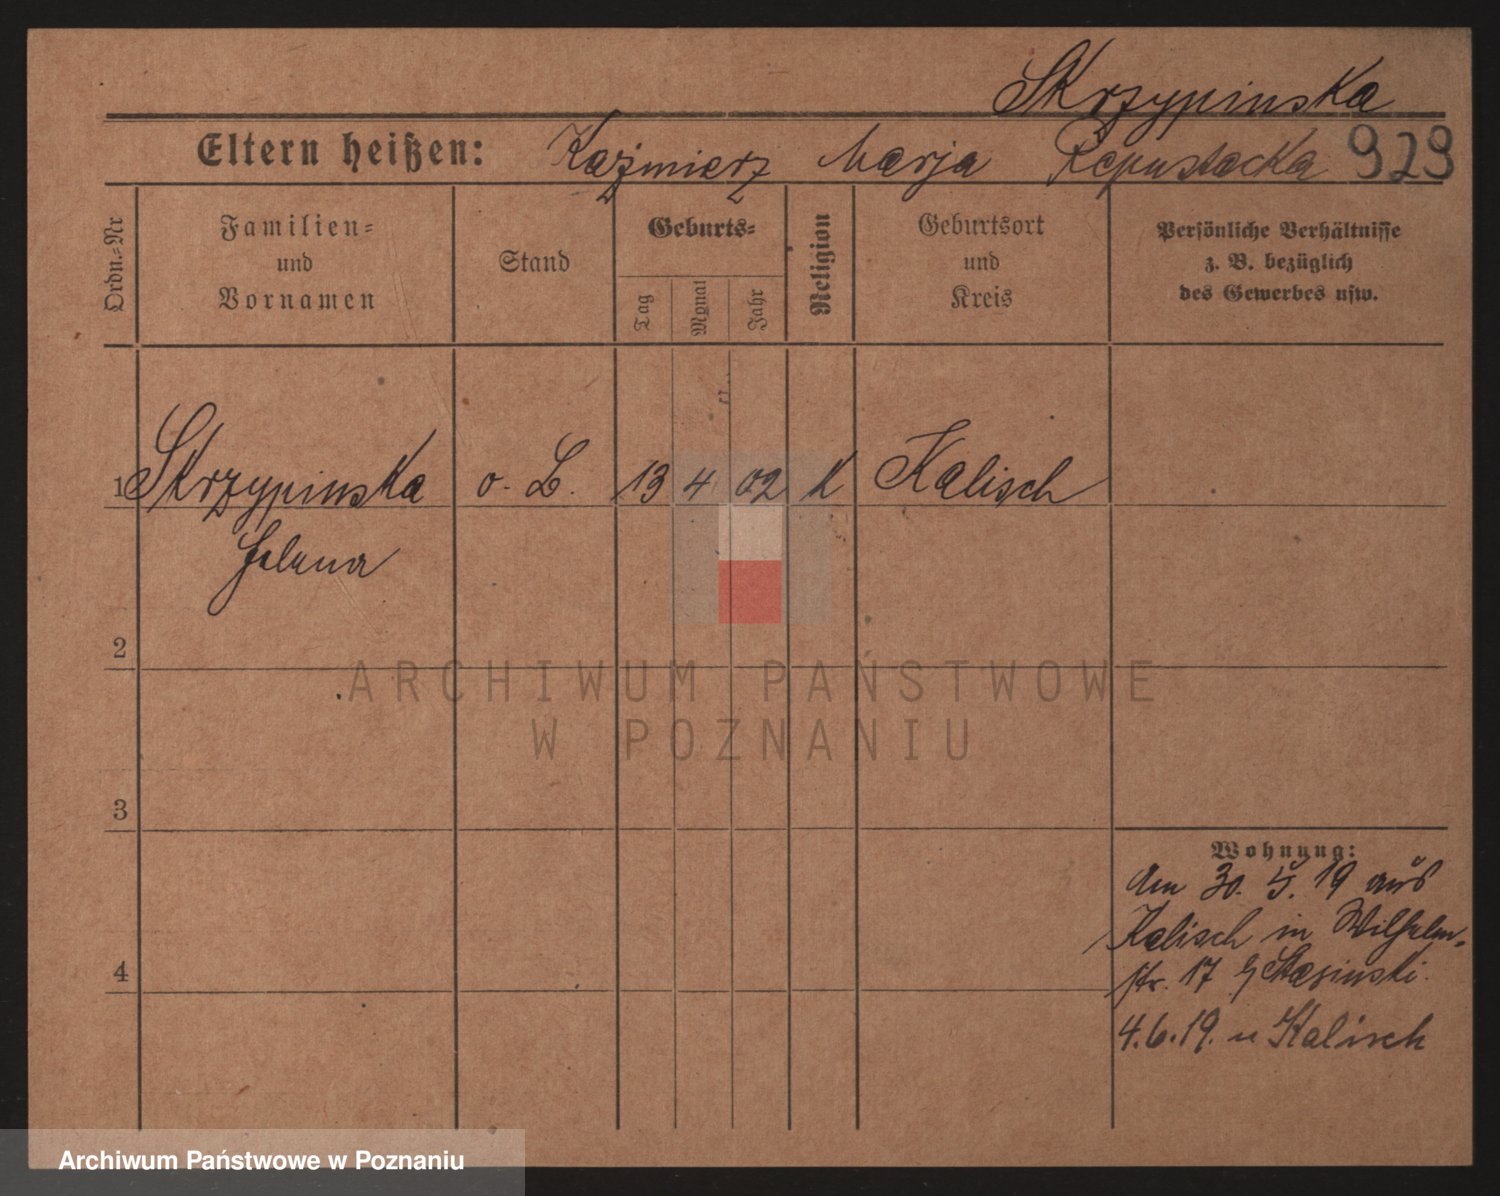 Skrzypinska
Eltern heißen: Kaźmierz Marja Repustacka 929
Ordn.=Nr
Familien=
und
Vornamen
Stand
Geburts=
Tag
Monat
Jahr
Religion
Geburtsort
und
Kreis
Persönliche Verhältnisse
z. B. bezüglich
des Gewerbes usw.
1 Skrzypinska o. B. 13 4 02 K Kalisch
Helena
2
3
4
Wohnung:
am 30. 5. 19 aus
Kalisch in Wilhelm-
str. 17 b/
4.6.19. n Kalisch
ARCHIWUM PAŃSTWOWE
W POZNANIU
Archiwum Państwowe w Poznaniu